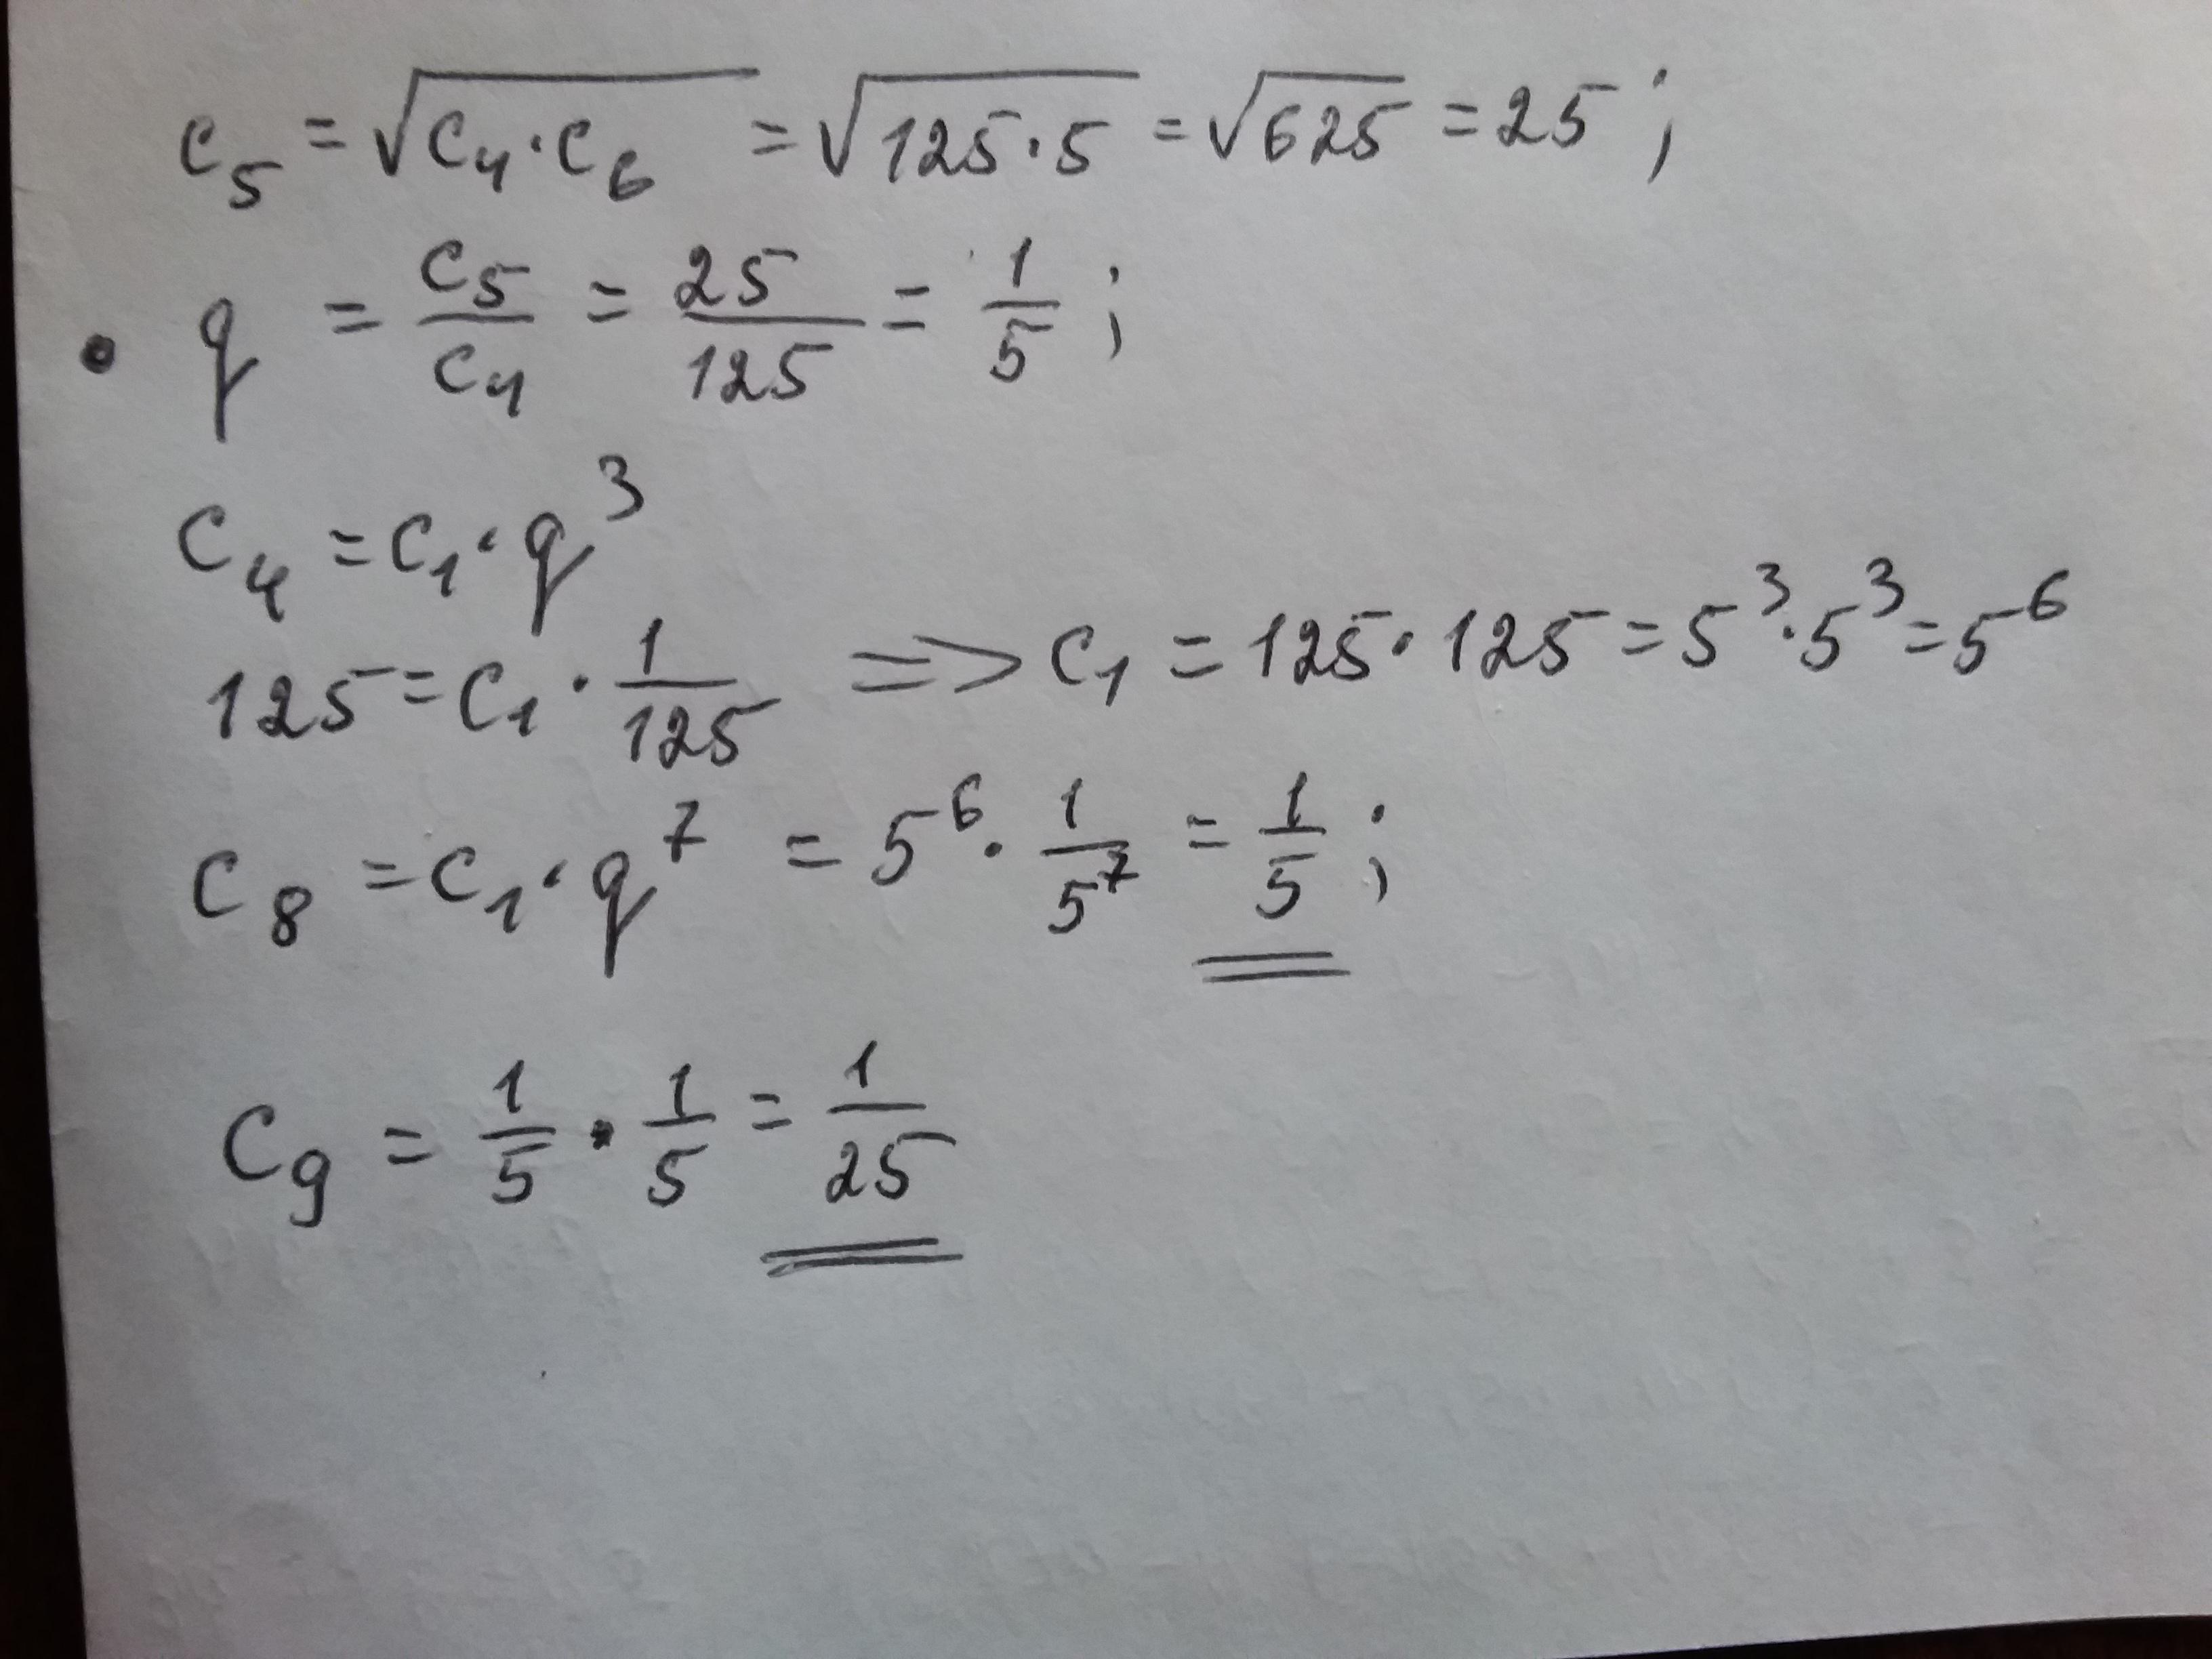 c₅ = √(c₄·c₆) = √(125·5) = √625 = 25;
• q = c₅/c₄ = 25/125 = 1/5;
c₄ = c₁·q³
125 = c₁·1/125 => c₁ = 125·125 = 5³·5³ = 5⁶
c₈ = c₁·q⁷ = 5⁶·1/5⁷ = 1/5;
c₉ = 1/5·1/5 = 1/25